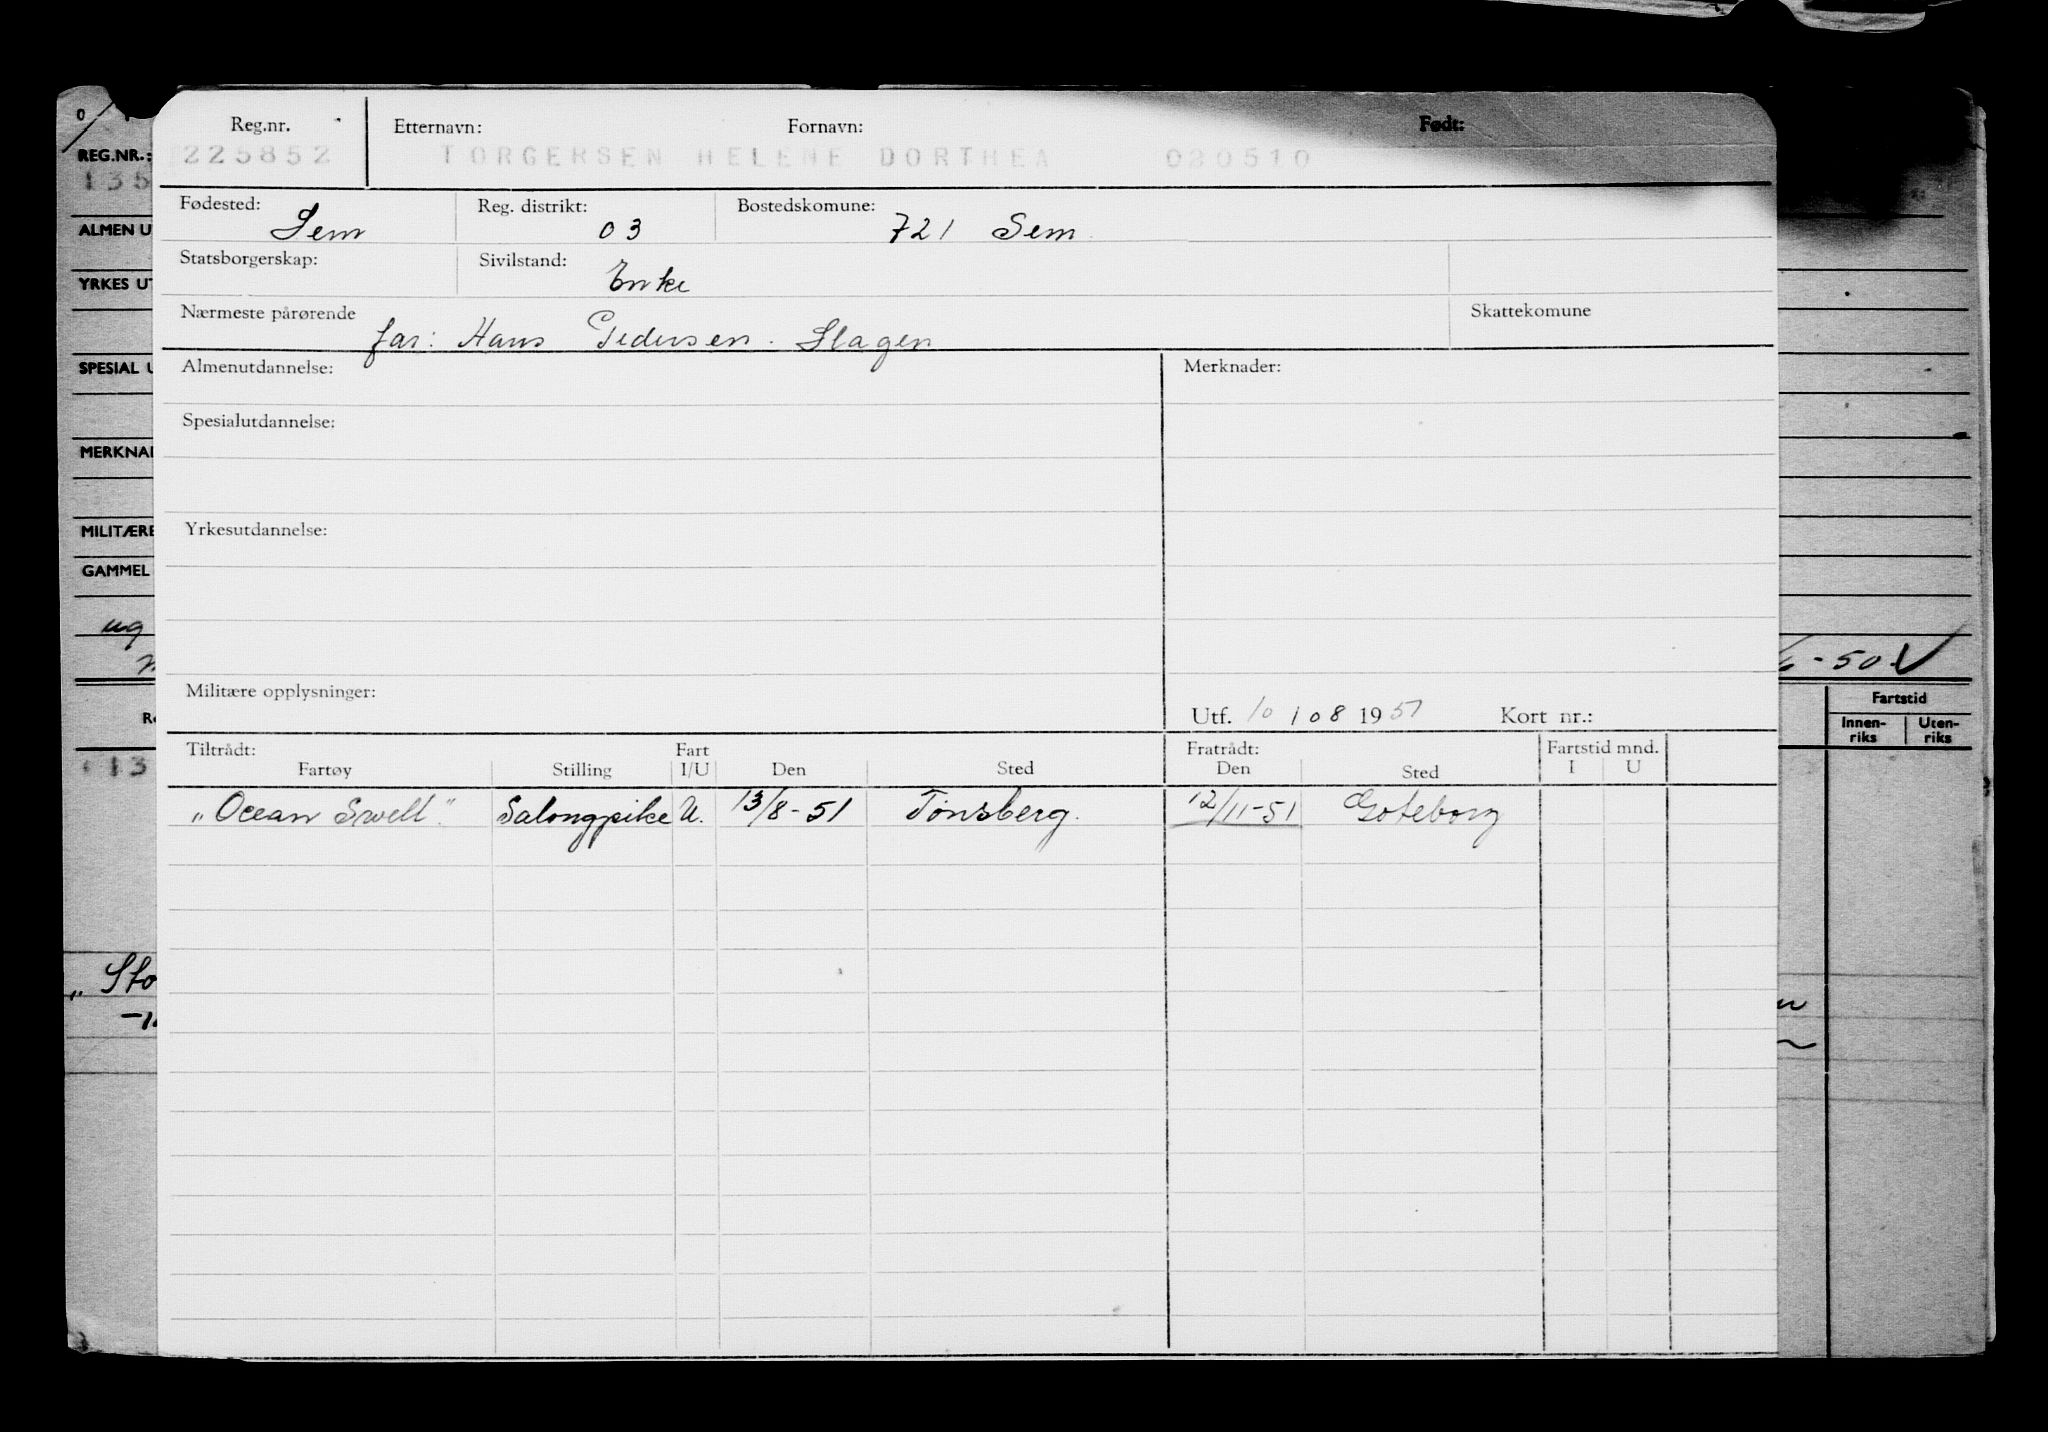 REG.NR.:
135
ALMEN U
YRKES UT
SPESIAL U
MERKNAD
MILITÆRE
GAMMEL
ug
- 50 V
Fartstid
Innen-riks Uten-riks
13
„ Sto
Reg.nr. Etternavn: Fornavn: Født:
225852 TORGERSEN HELENE DORTHEA 020510
Fødested: Sem Reg. distrikt: 03 Bostedskomune: 721 Sem
Statsborgerskap: Sivilstand: Enke
Nærmeste pårørende far: Hans Pedersen. Slagen Skattekomune
Almenutdannelse: Merknader:
Spesialutdannelse:
Yrkesutdannelse:
Militære opplysninger:
Utf. 10 / 08 1951 Kort nr.:
Tiltrådt: Fart Fratrådt: Fartstid mnd.
Fartøy Stilling I/U Den Sted Den Sted I U
„Ocean Swell". Salongpike U. 13/8-51 Tønsberg. 12/11-51 Gøteborg